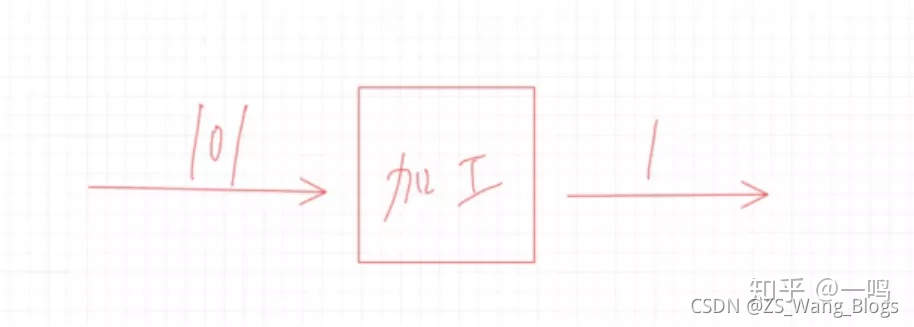 101
加工
1
知乎 @一鸣
CSDN @ZS_Wang_Blogs